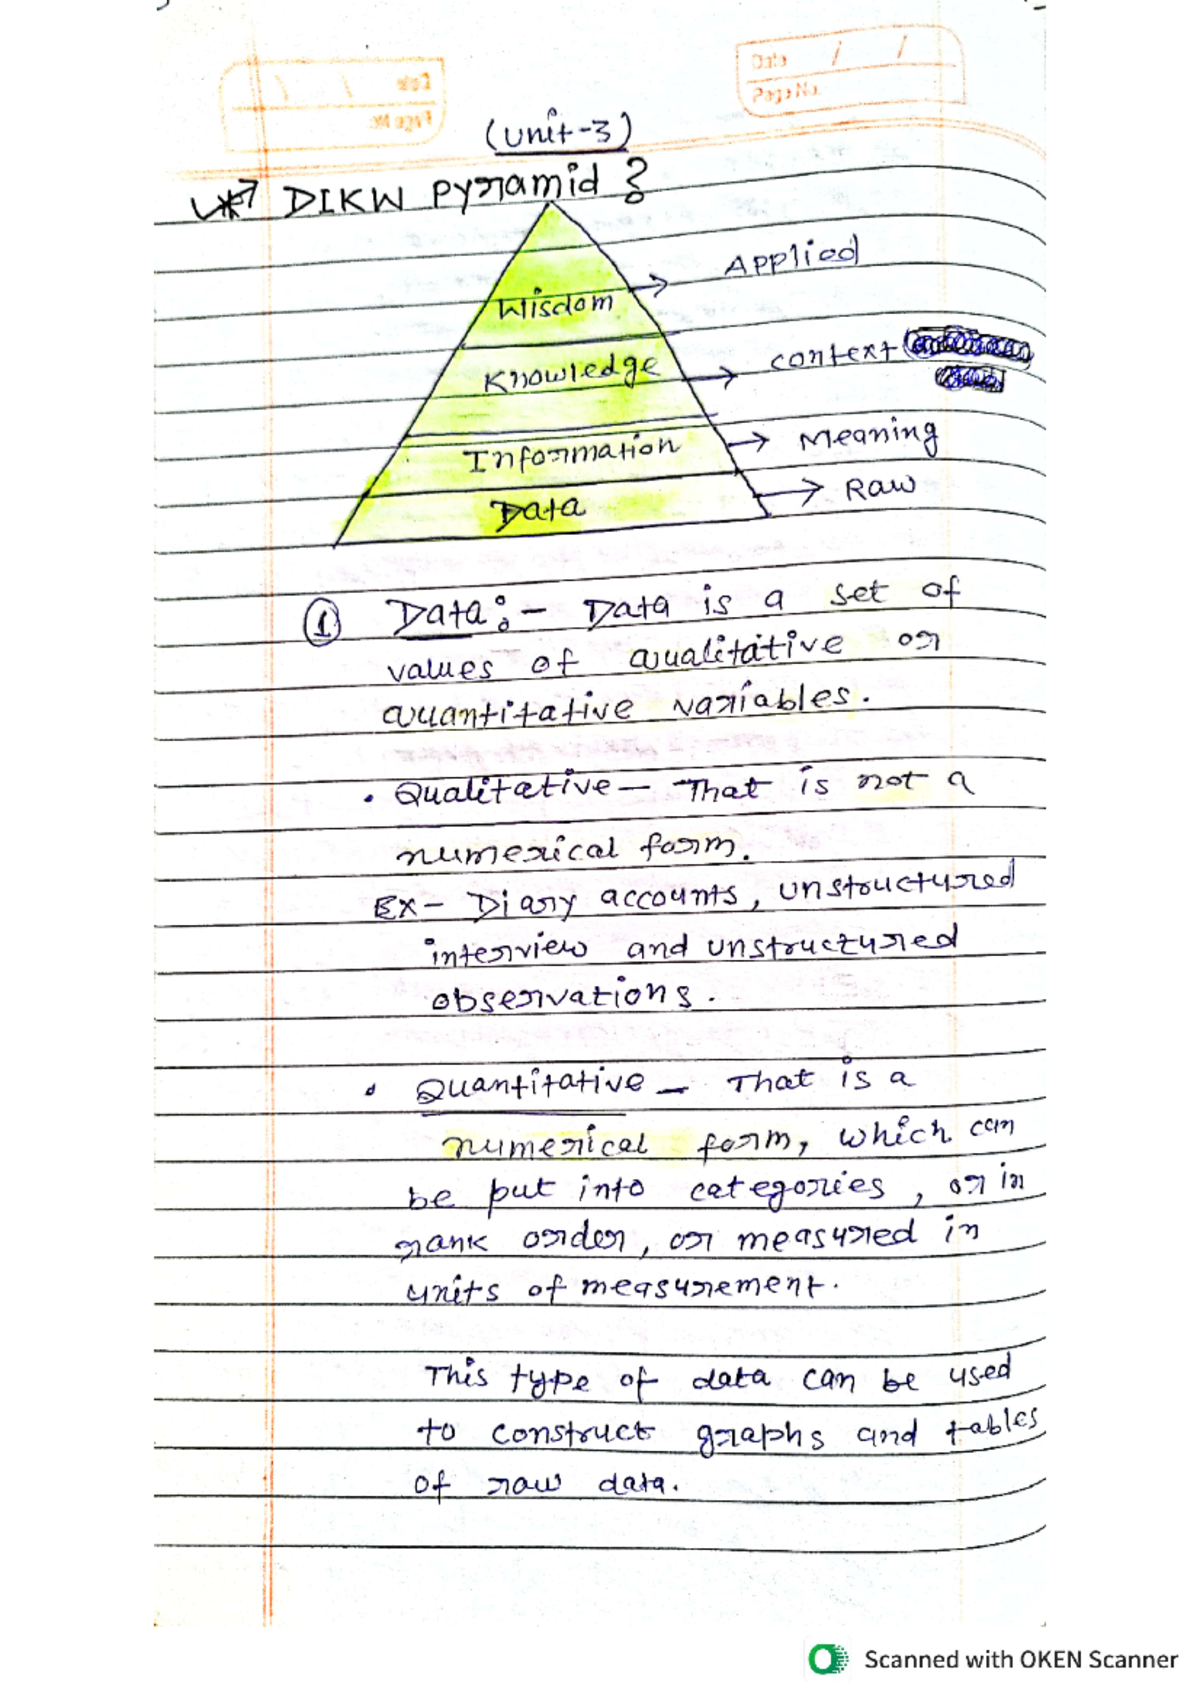 Date / /
Page No.
(Unit-3)
DIKW Pyramid ?
Wisdom → Applied
Knowledge → context
Information → Meaning
Data → Raw
① Data :- Data is a set of
values of qualitative or
quantitative variables.
• Qualitative - That is not a
numerical form.
Ex- Diary accounts, unstructured
interview and unstructured
observations.
• Quantitative - That is a
numerical form, which can
be put into categories, or in
rank order, or measured in
units of measurement.
This type of data can be used
to construct graphs and tables
of raw data.
Scanned with OKEN Scanner